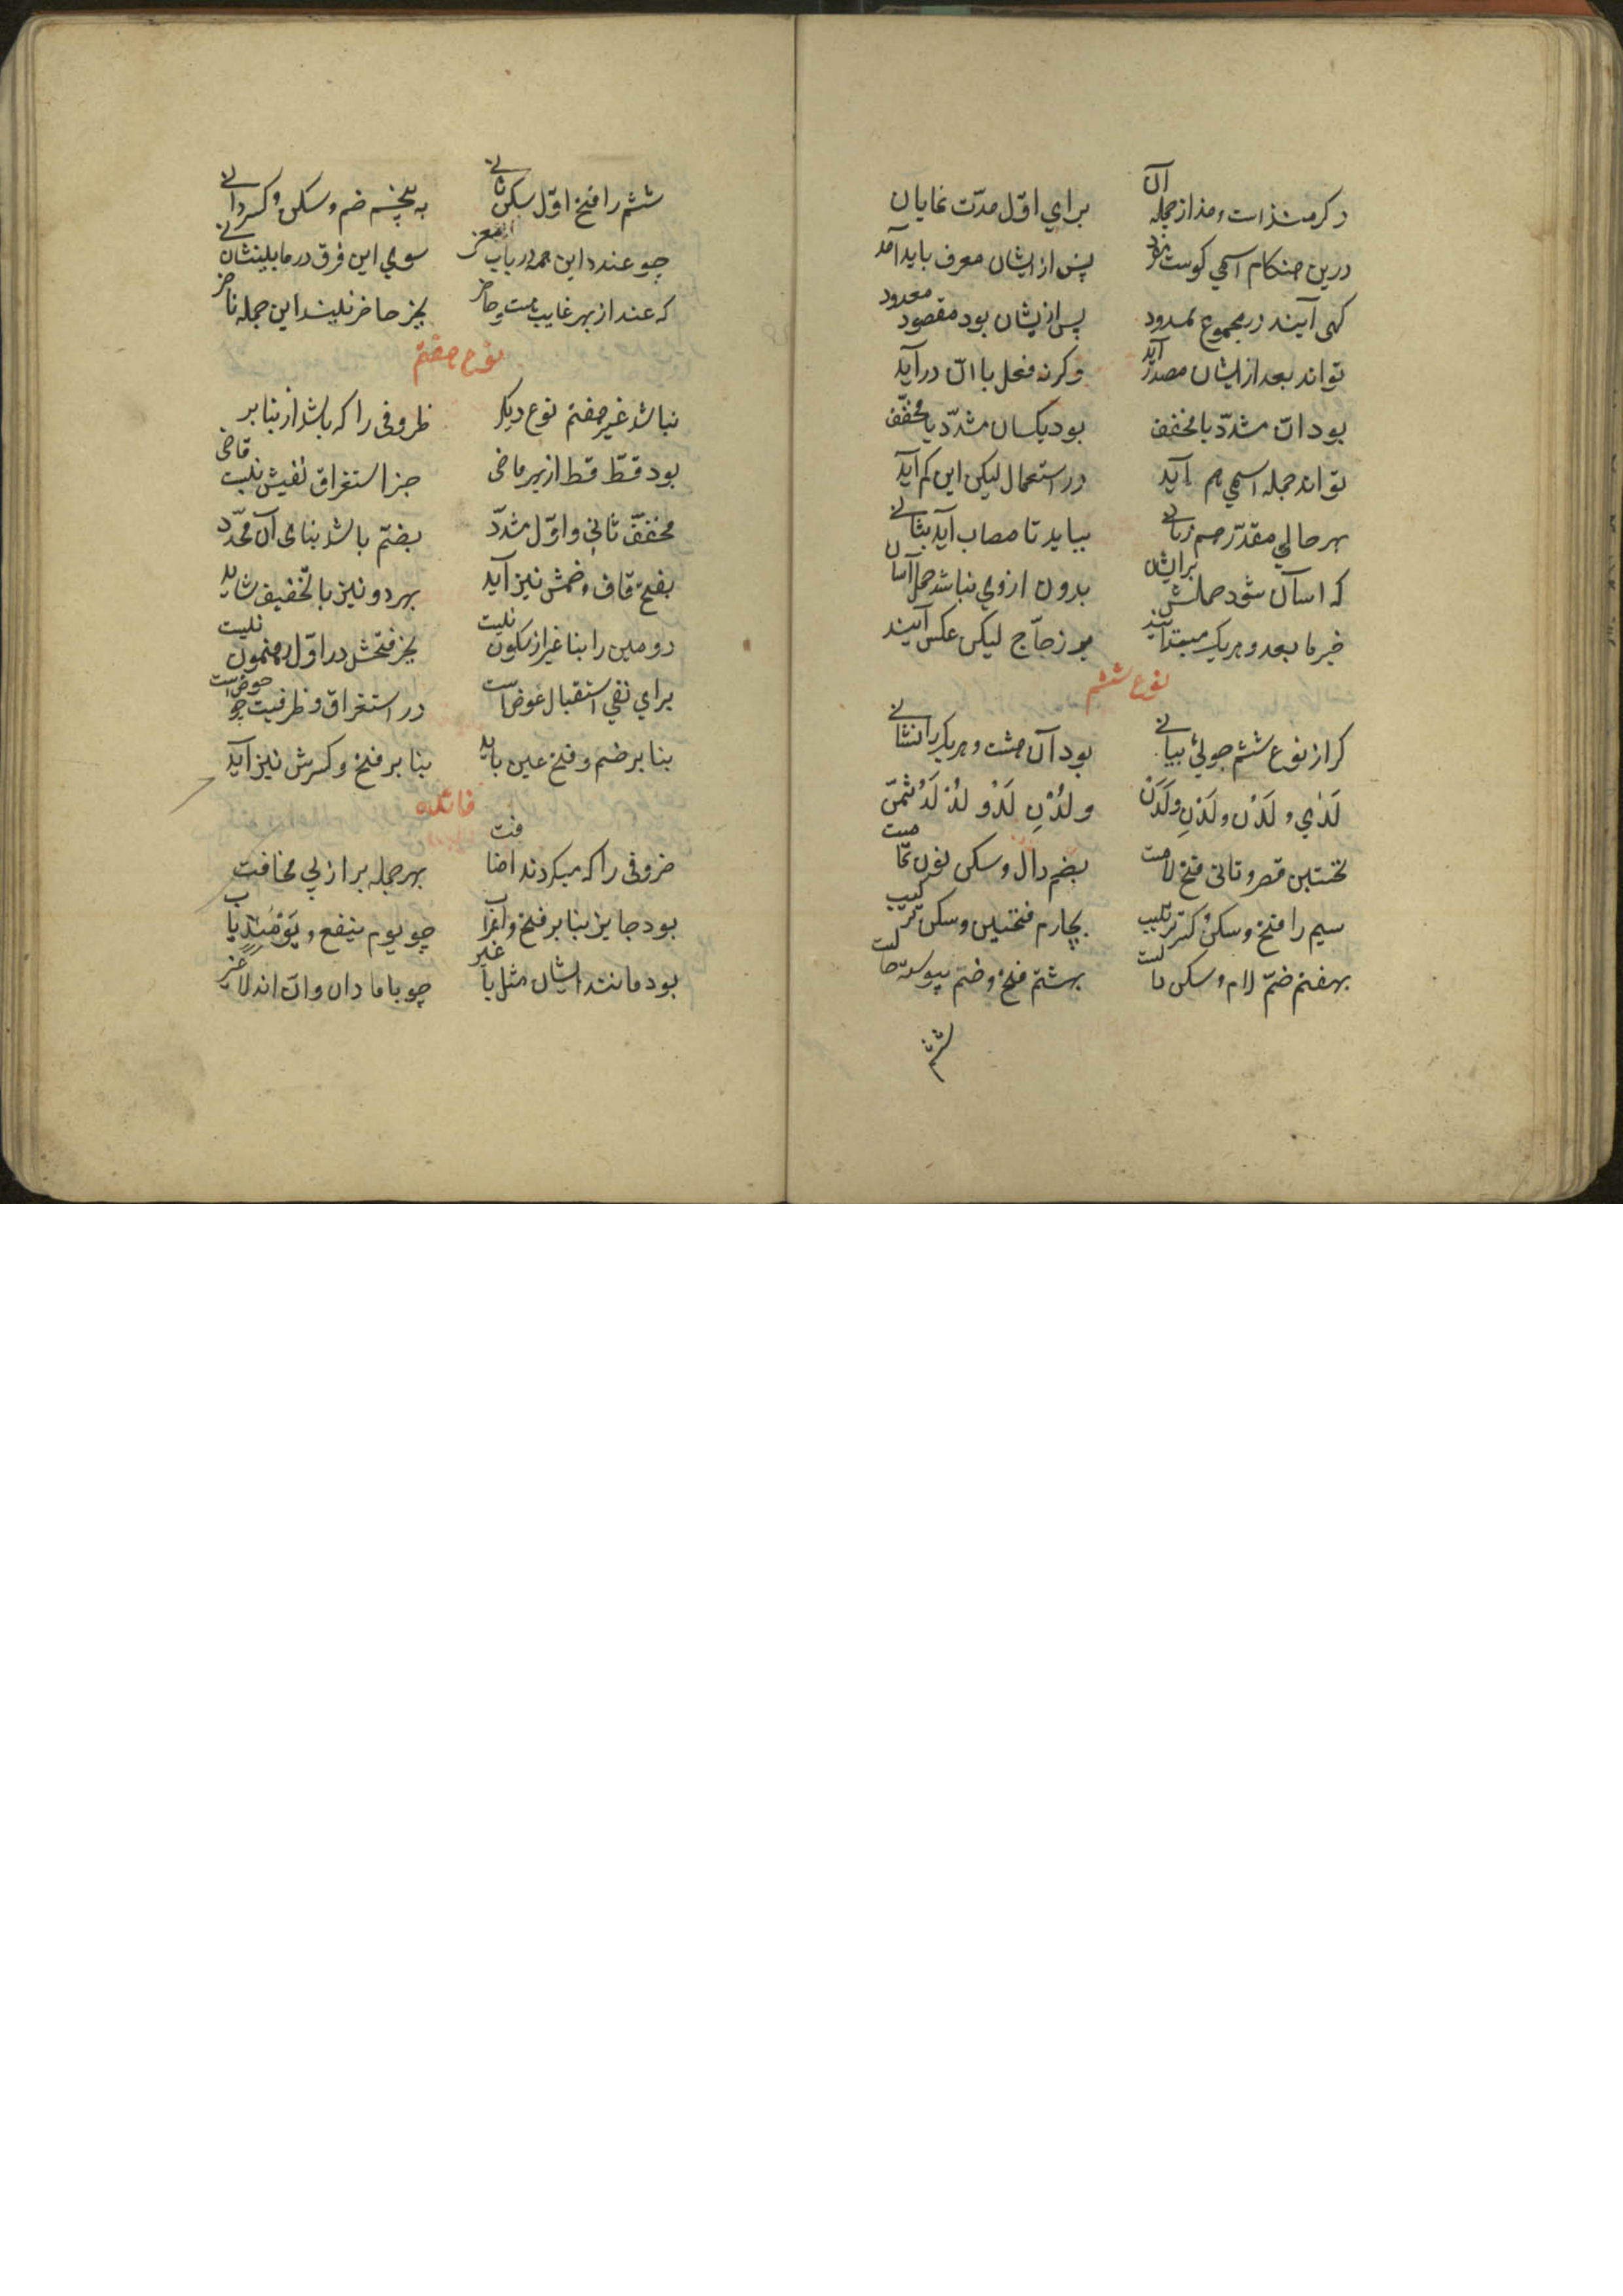 دکر منذ است و مذ از جمله آن برای اول مدت نمایان
درین هنکام اسمی کوست مفرد پس از ایشان معرف باید آمد
کهی آیند در مجموع معدود پس از ایشان بود مقصود معدود
تواند بعد از ایشان مصدر آید وکرنه فعل با ان در آید
بود ان مشدد یا مخفف بود یکسان مشدد یا مخفف
تواند جمله اسمی هم آید در استعمال لیکن این کم آید
بهر حالی مقدر هم زمانی بیاید تا مصاب آید بثانی
که اسان شود حملش برایشان بدون از وی نباشد حمل آسان
خبر ما بعد و هریک مبتدایند بر زجاج لیکن عکس آیند
نوع ششم
کر از نوع ششم جوئی بیانی بود آن هشت و هریک را نشانی
لدی و لدن و لدن و لدن و لدن لد و لد لد ثمن
نخستین قصر و ثانی فتح لامست بضم دال و سکن نون تمامست
سیم را فتح و سکن کسر ترتیب بچارم فتحتین و سکن ترکیب
بهفتم ضم لام و سکن دالست بهشتم فتح و ضم پیوسته حالست
ششم
ششم را فتح اول سکن ثانی به پنجم ضم و سکن و کسر دانی
چو عند و این همه در باب معنی سوی این فرق در مابینشان نی
که عند از بهر غایب هست و حاضر بجز حاضر نیند این جمله ناضر
نوع هفتم
نباشد غیر هفتم نوع دیکر ظروفی را که باشد از بنا بر
بود قط قط از بهر ماضی جز استغراق نفیش نیست قاضی
مخفف ثانی و اول مشدد بضم باشد بنای آن محدد
بفتح قاف و ضمش نیز آید بهر دو نیز با تخفیف شاید
دومین را بنا غیر از سکون نیست بجز فتحش در اول رهنمون نیست
برای نفی استقبال عوض است در استغراق و ظرفیت چو حوض است
بنا بر ضم و فتح عین باید بنا بر فتح و کسرش نیز آید
فائده
ضروفی را که میکردند اضافت بهر جمله بر از پی مخافت
بود جایز بنا بر فتح و اعراب چو یوم ینفع و یومئذ یاب
بود مانند ایشان مثل یا غیر چو با ما دان و ان اند لا غیر